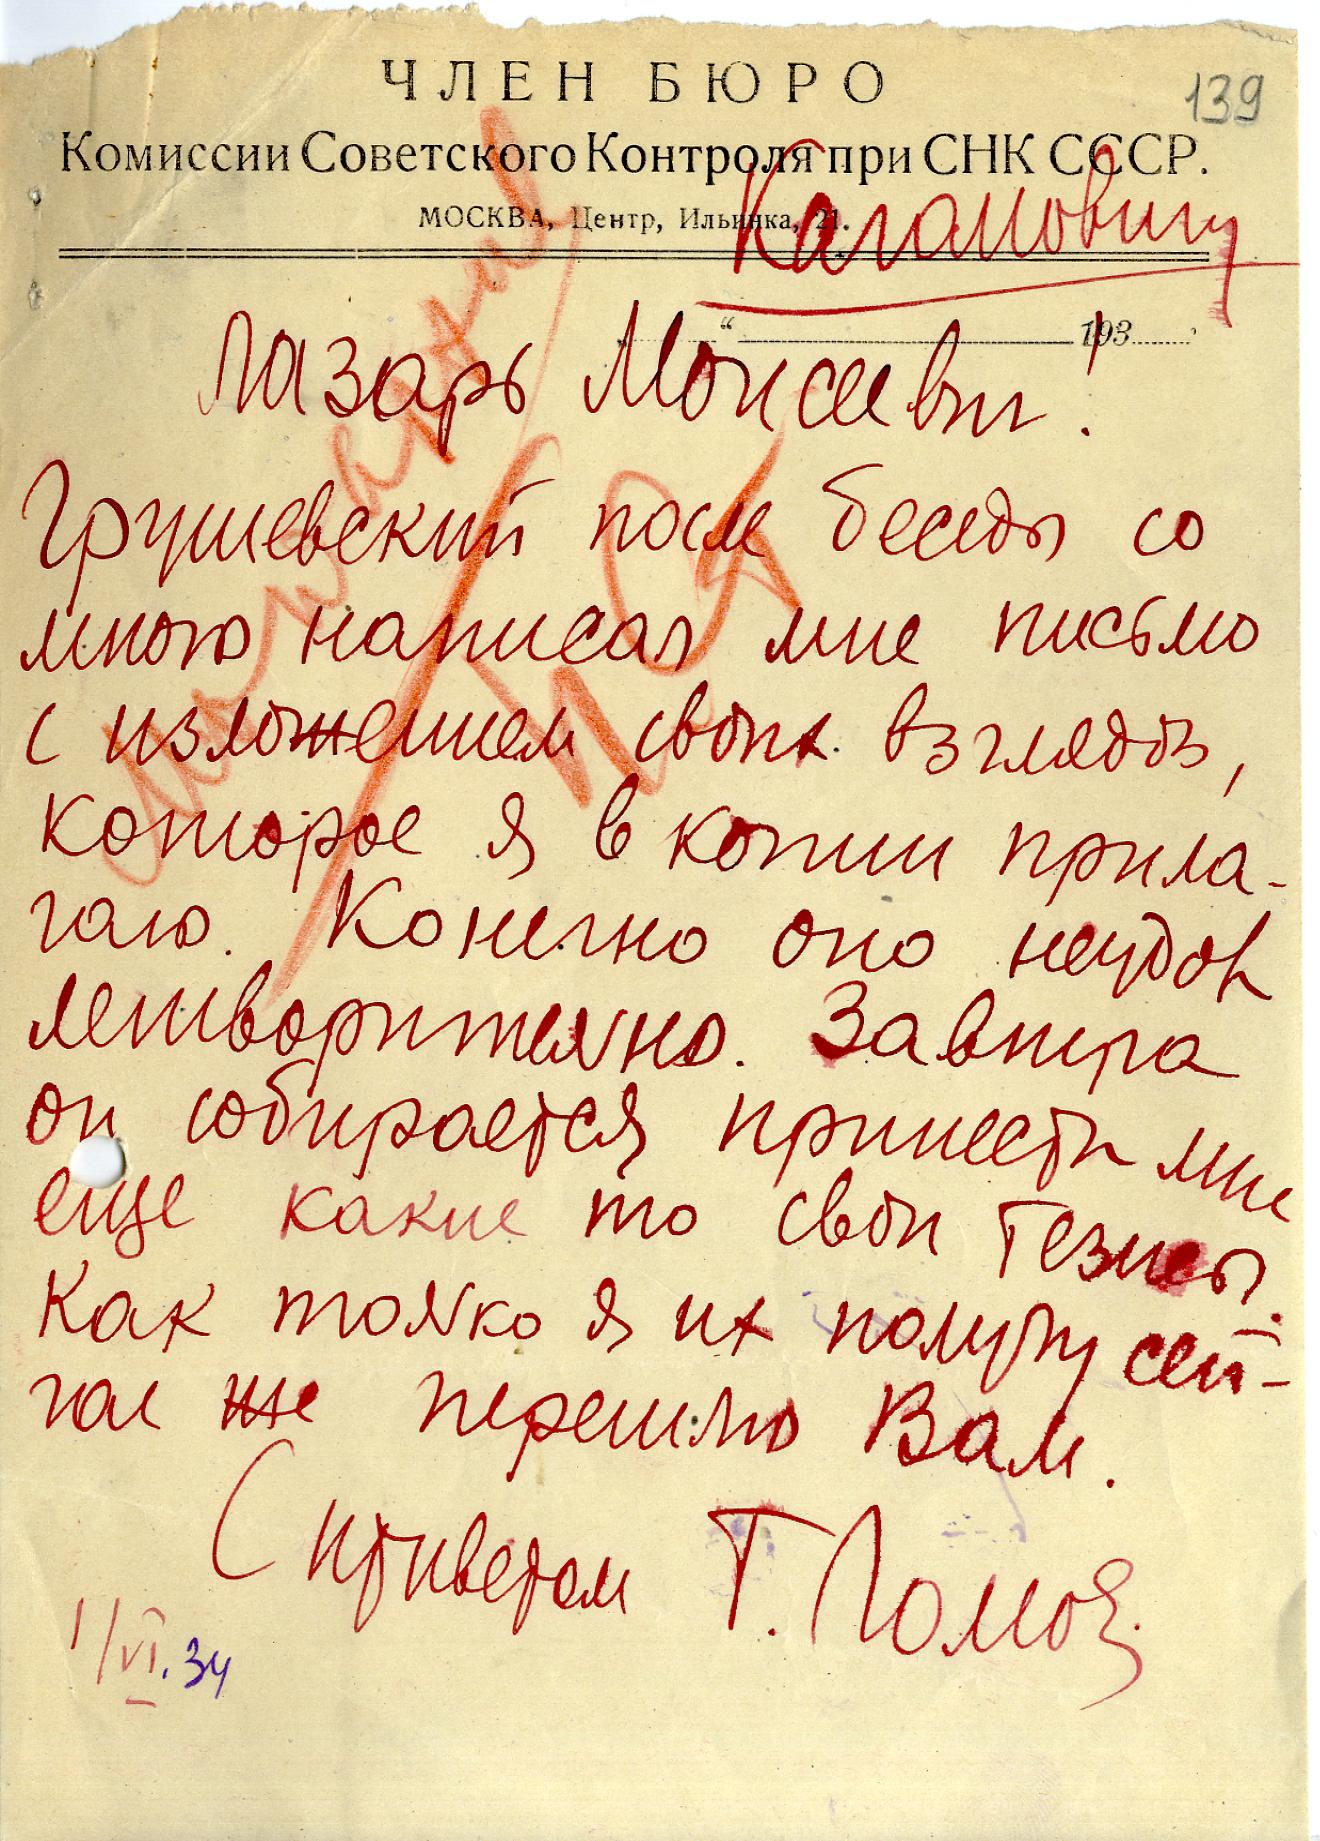 ЧЛЕН БЮРО
139
Комиссии Советского Контроля при СНК СССР.
МОСКВА, Центр, Ильинка, 21.
Кагановичу
" 193
Лазарь Моисеевич!
Грушевский после беседы со
мною написал мне письмо
с изложением своих взглядов,
которое я в копии прила-
гаю. Конечно оно неудов
летворительно. Завтра
он собирается принести мне
еще какие то свои тезисы.
Как только я их получу сей-
час же перешлю Вам.
С приветом Г. Ломов
1/VI.34